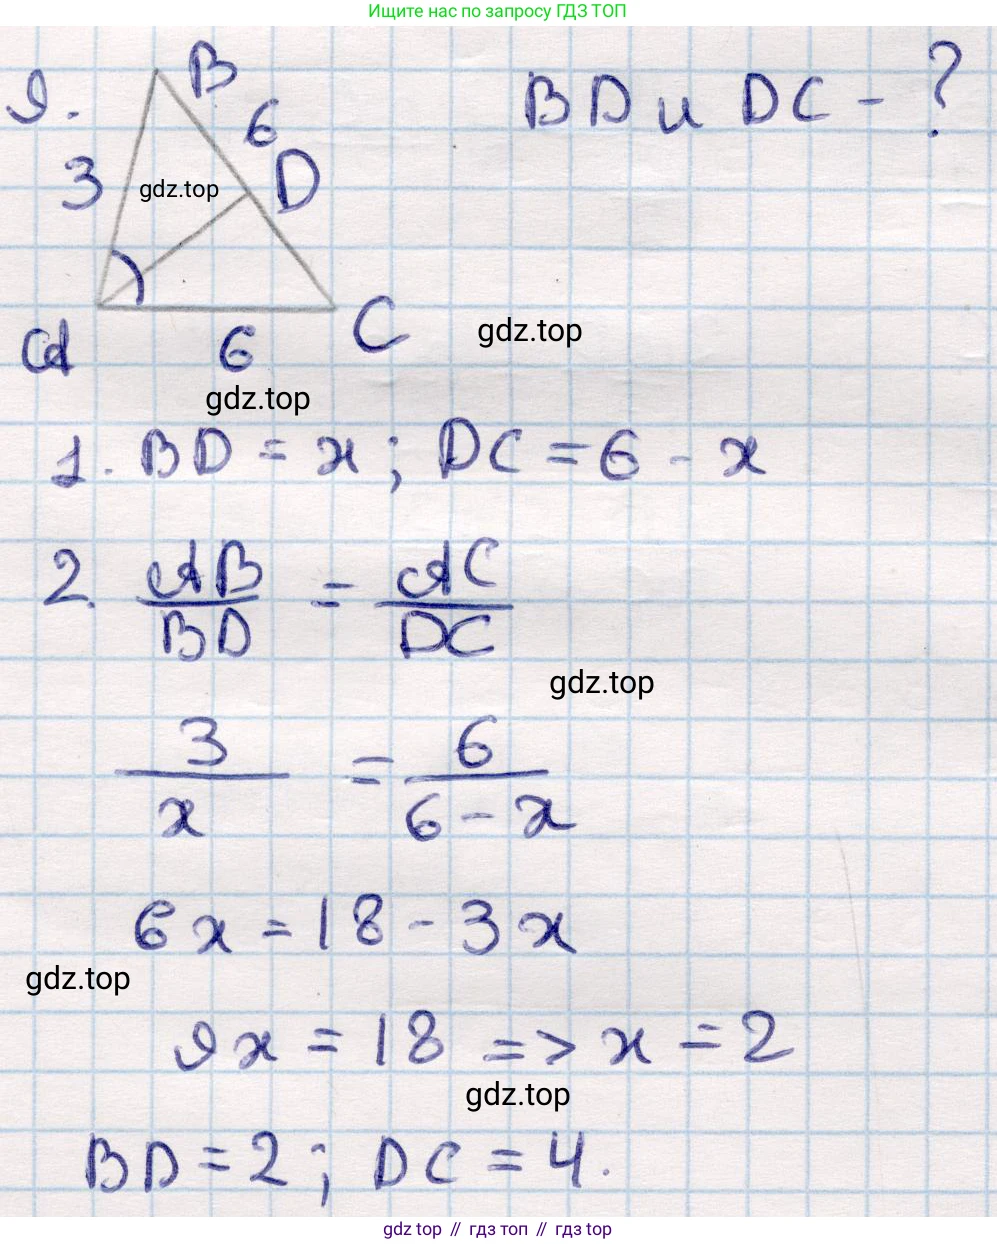 Ищите нас по запросу ГДЗ ТОП
9.
B
6
BD и DC - ?
3
gdz.top
D
A
6
C
gdz.top
gdz.top
1. BD = x; DC = 6 - x
2. AB/BD = AC/DC
gdz.top
3/x = 6/6 - x
6x = 18 - 3x
gdz.top
9x = 18 => x = 2
gdz.top
BD = 2; DC = 4.
gdz top // гдз топ // гдз top